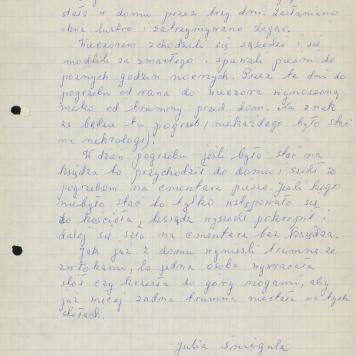 stało w domu przez trzy dni. Zasłaniano
okna lustro i zatrzymywano zegar.
Wieczorem schodzili się sąsiedzi i
modlili za zmarłego i śpiewali pieśni do
poznych godzin nocnych. Przez te dni do
pogrzebu od rana do wieczora wynoszono
od trumny przed dom. Na znak
ze będzie tu pogrzeb / niekażdego było stać
na nekrologi).
W dzien pogrzebu jeśli było stać na
księdza to przychodził do domu i szedł z
pogrzebem na cmentarz pieszo. Jeśli kogo
niebyło stać to tylko wstępowało się
do kościoła, ksiądz wyszedł pokropił i
dalej się szło na cmentarz bez księdza.
Jak już z domu wynieśli trumnę ze
zwłokami, to jedna osoba wywracała
stoł czy krzesła do góry nogami, aby
już więcej żadna trumna niestała na tych
stołach.
Julia